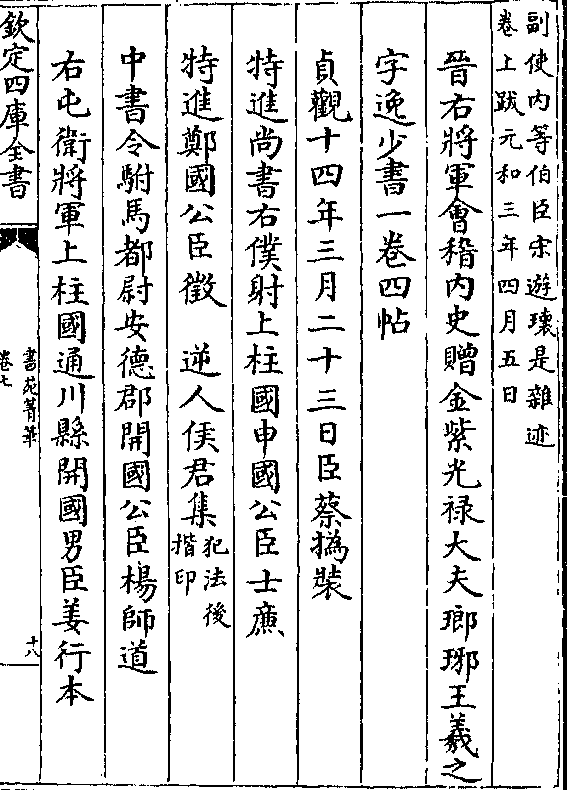 副使内等伯臣宋遊瓌是雜迹
卷上跋元和三年四月五日
晉右將軍會稽内史贈金紫光禄大夫瑯琊王羲之
字逸少書一卷四帖
貞觀十四年三月二十三日臣蔡撝裝
特進尚書右僕射上柱國申國公臣士㢘
特進鄭國公臣徵　逆人侯君集犯法後
揩印
中書令駙馬都尉安德郡開國公臣楊師道
右屯衛將軍上柱國通川縣開國男臣姜行本
欽定四庫全書
書苑菁華
卷七
十八